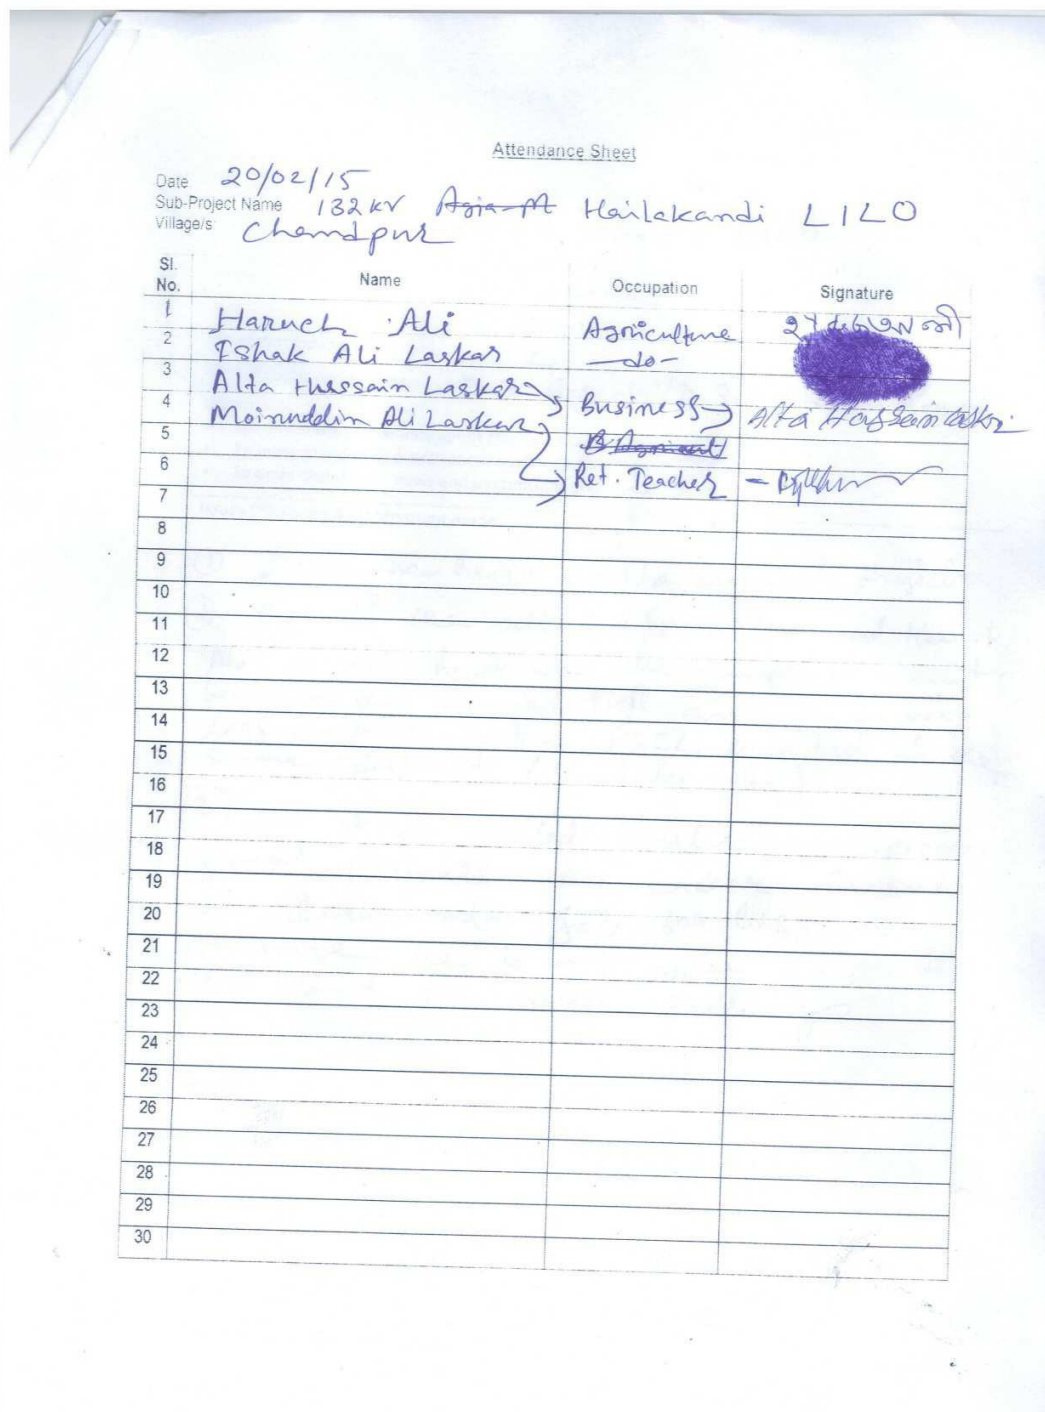 Attendance Sheet
Date 20/02/15
Sub-Project Name 132 KV Hailakandi LILO
Village/s Chandpur
Sl. No. Name Occupation Signature
1 Haruch Ali Agriculture
2 Ishak Ali Laskar —do—
3 Alta Hussain Laskar
4 Moinuddin Ali Laskar Business Alta Hussain Laskar
5
6 Ret. Teacher
7
8
9
10
11
12
13
14
15
16
17
18
19
20
21
22
23
24
25
26
27
28
29
30